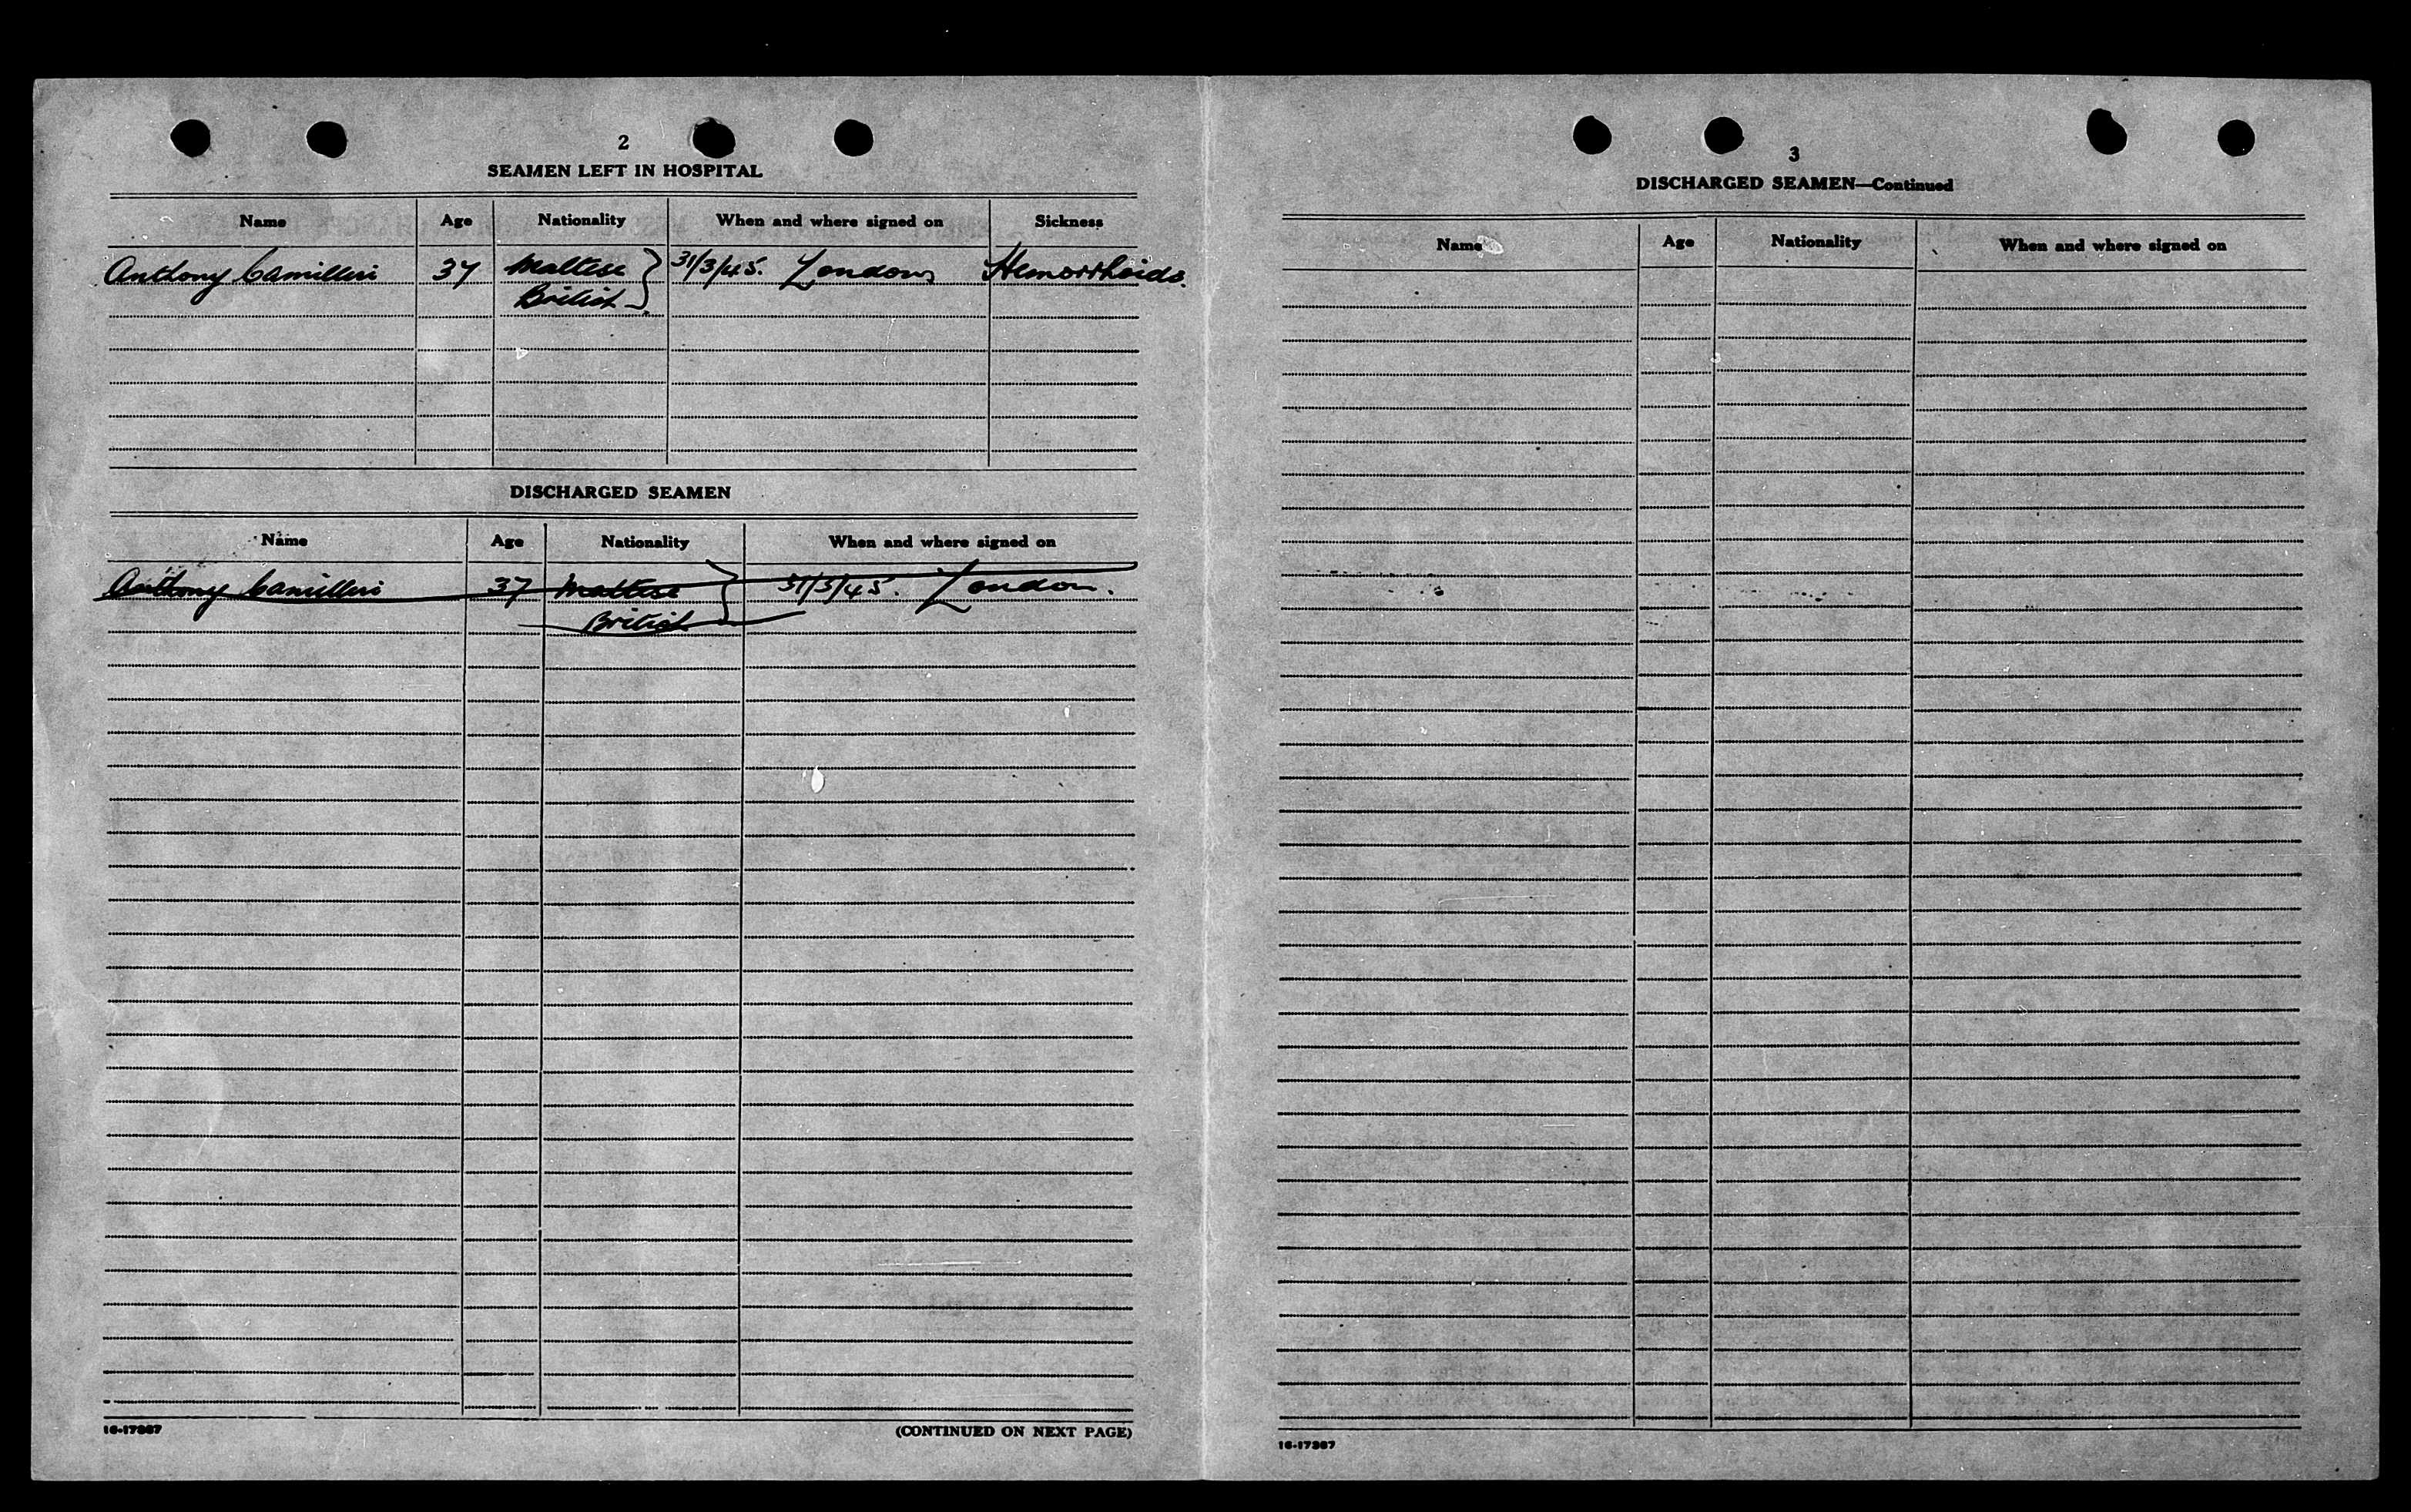 2
SEAMEN LEFT IN HOSPITAL
Name Age Nationality When and where signed on Sickness
Anthony Camilleri 37 Maltese } 31/3/45. London Hemorrhoids.
British
DISCHARGED SEAMEN
Name Age Nationality When and where signed on
Anthony Camilleri 37 Maltese } 31/3/45. London.
British
16-17367
(CONTINUED ON NEXT PAGE)
3
DISCHARGED SEAMEN—Continued
Name Age Nationality When and where signed on
16-17367